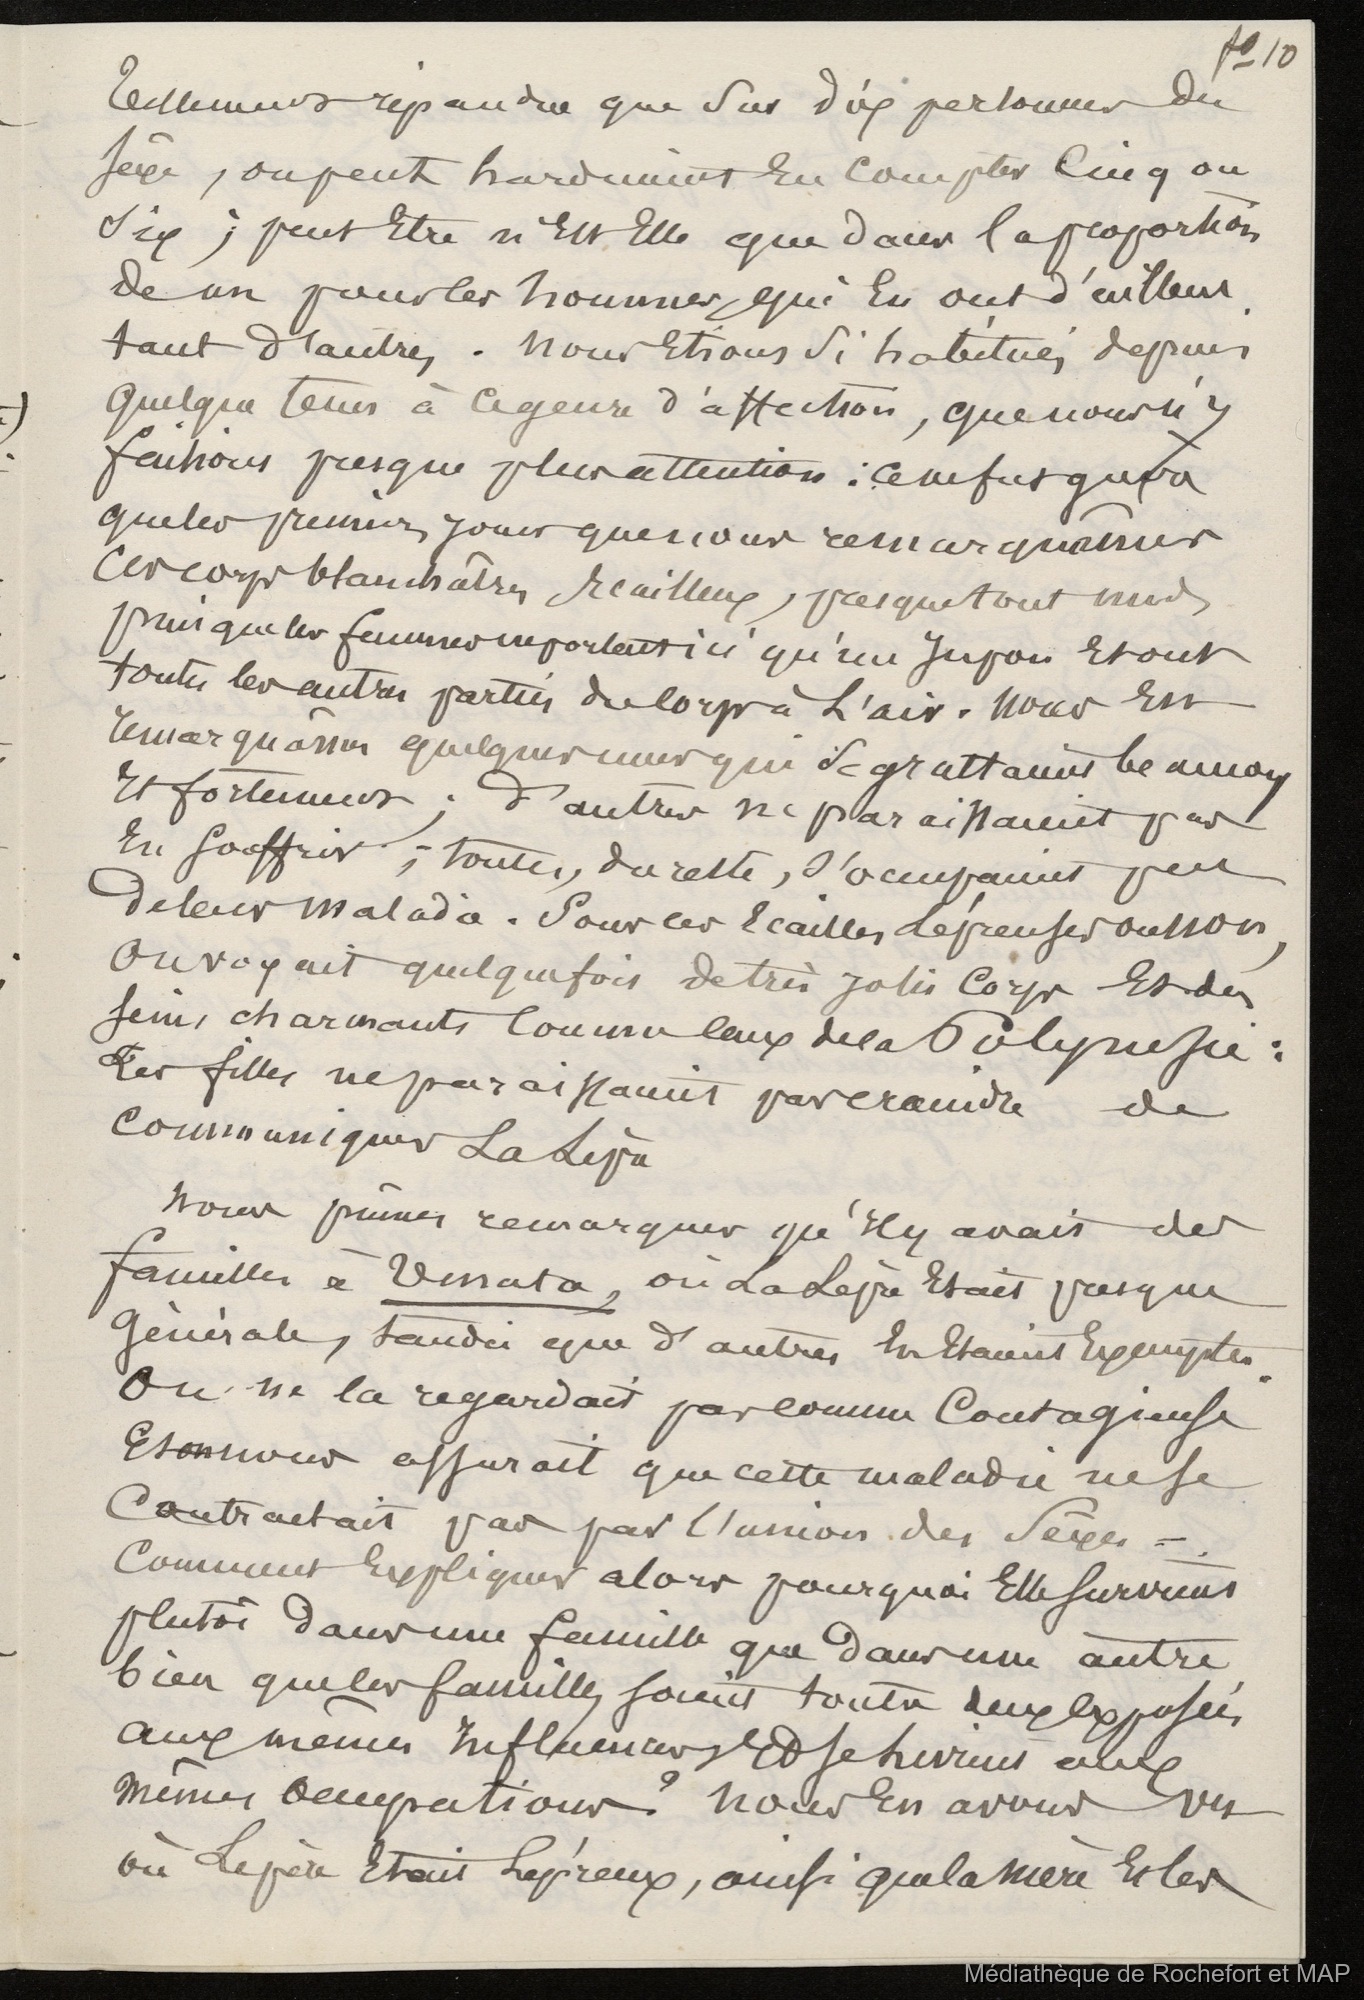 fo 10
tellement répandue que sur dix personnes du
sexe, on peut hardiment En compter Cinq ou
Six ; peut Etre n'Est Elle que dans la proportion
de un pour les hommes, qui En ont d'ailleurs
tant d'autres. Nous Etions Si habitués depuis
quelque tems à ce genre d'affection, que nous n'y
faisions presque plus attention : ce ne fut
que les premiers jours que nous remarquâmes
Ces corps blanchâtres Ecailleux, presque tout nuds
puisque les femmes ne portent ici qu'un Jupon Et ont
toutes les autres parties du Corps à L'air. Nous En
remarquâmes quelques unes qui Se grattaient beaucoup
Et fortement ; d'autres ne paraissaient pas
En Souffrir ; toutes, du reste, S'occupaient peu
de leur maladie. Sous ces Ecailles Lépreuses ou non,
On voyait quelquefois de très jolis Corps Et des
seins charmants Comme Ceux de la Polynésie :
Les filles ne paraissaient pas craindre de
Communiquer La Lèpre
Nous pûmes remarquer qu'Il y avait des
familles à où La Lèpre Etait presque
Générale, tandis que d'autres En Etaient Exemptes.
On ne la regardait pas comme Contagieuse
Et on nous assurait que cette maladie ne se
Contractait pas par L'union des Sexes =
Comment Expliquer alors pourquoi Elle survient
plutôt dans une famille que dans une autre
bien que les familles soient toutes deux Exposées
aux mêmes Influences, Et se livrent aux
mêmes Occupations ? Nous En avons vu
où Le père Etait Lépreux, ainsi que la mère Et les
Médiathèque de Rochefort et MAP